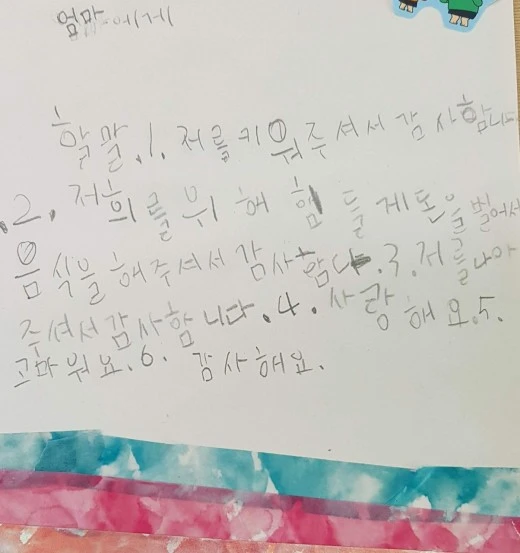 엄마에게
할말.1. 저를키워주셔서 감사합니다
.2. 저희를위해 힘들게돈을벌어서
음식을해주셔서 감사합다.3.저를나아
주셔서감사합니다.4. 사랑해요.5.
고마워요.6. 감사해요.